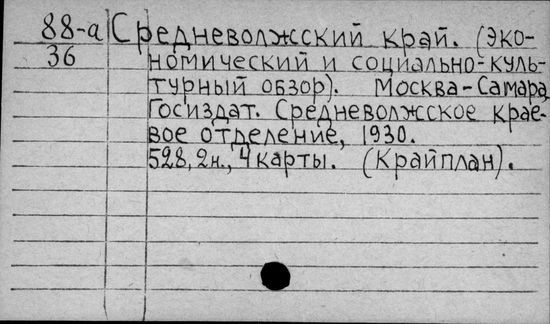 88-а Средневолжский край. (Эко-
36 номический и социально-куль-
турный обзор). Москва-Самара,
Госиздат. Средневолжское крае-
вое отделение, 1930.
528, 2н., 4 карты. (Крайплан).